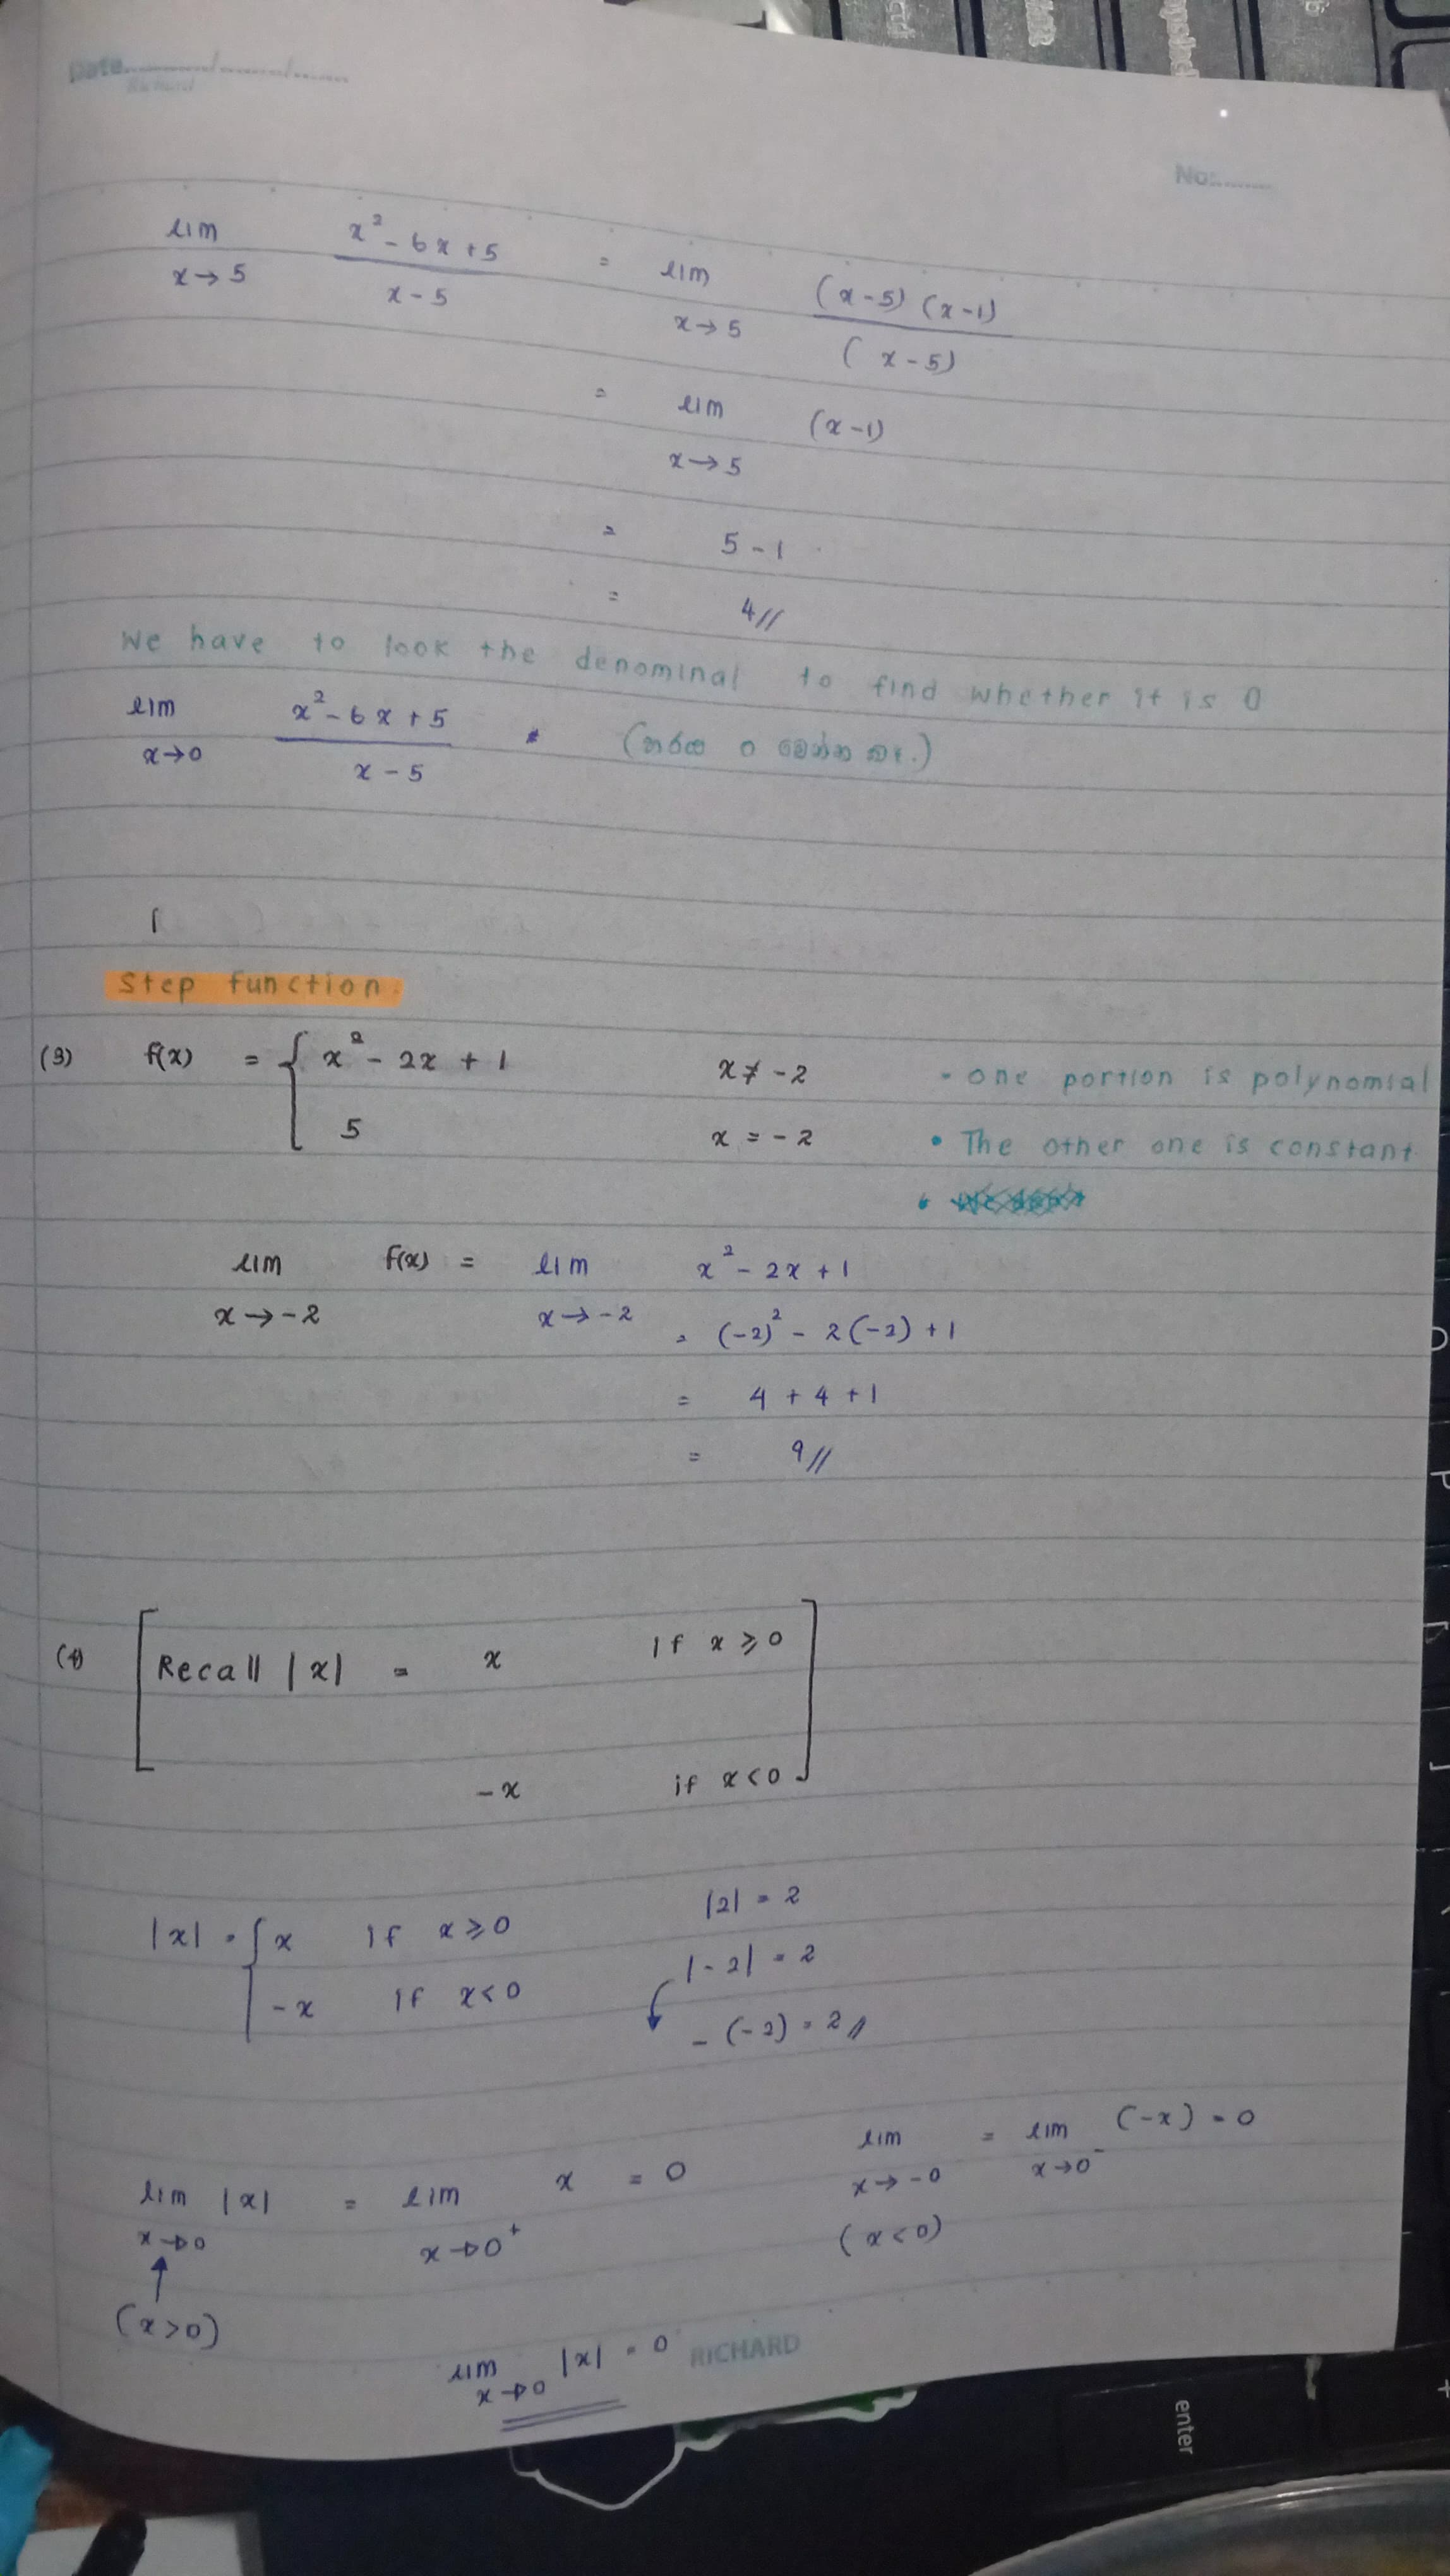 Date.........../.........../...........
Richard
No:..........
lim x→5 x² - 6x + 5 / x - 5 = lim x→5 (x-5) (x-1) / (x-5)
= lim x→5 (x-1)
= 5 - 1
= 4//
We have to look the denominal to find whether it is 0
lim x→0 x² - 6x + 5 / x - 5 (හරය 0 වෙන්න බෑ.)
Step function.
(3) f(x) = { x² - 2x + 1 x ≠ -2 - one portion is polynomial
5 x = -2 • The other one is constant
lim x→-2 f(x) = lim x→-2 x² - 2x + 1
= (-2)² - 2(-2) + 1
= 4 + 4 + 1
= 9//
(4) [Recall |x| = x If x ≥ 0
-x if x < 0]
|x| = { x If x ≥ 0 |2| = 2
-x If x < 0 |-2| = 2
-(-2) = 2//
lim x→0 |x| = lim x→0⁺ x = 0 lim x→-0 = lim x→0⁻ (-x) = 0
(x>0) (x<0)
lim x→0 |x| = 0
RICHARD
enter